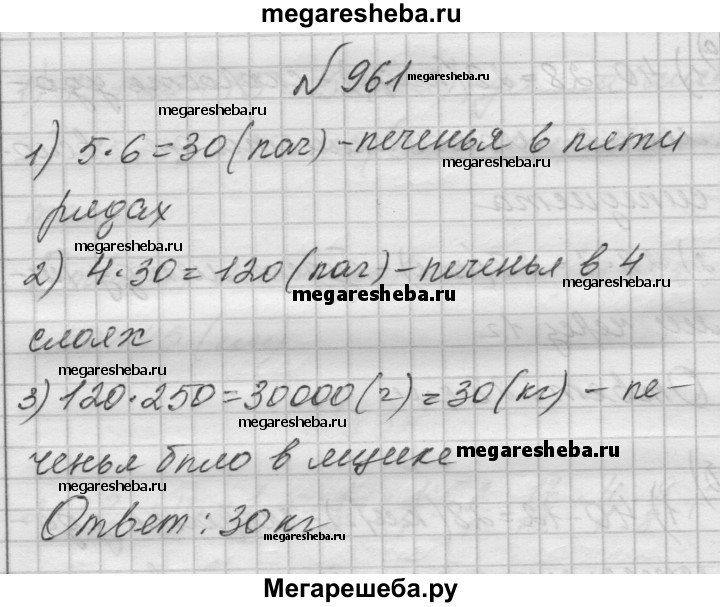 megaresheba.ru
№ 961 megaresheba.ru
megaresheba.ru
1) 5·6=30(пач)-печенья в пяти
megaresheba.ru
рядах
megaresheba.ru
2) 4·30=120(пач)-печенья в 4
megaresheba.ru
megaresheba.ru
слоях
megaresheba.ru
3) 120·250=30000(г)=30(кг) - пе-
ченья было в ящике megaresheba.ru
megaresheba.ru
Ответ: 30 кг
megaresheba.ru
Мегарешеба.ру